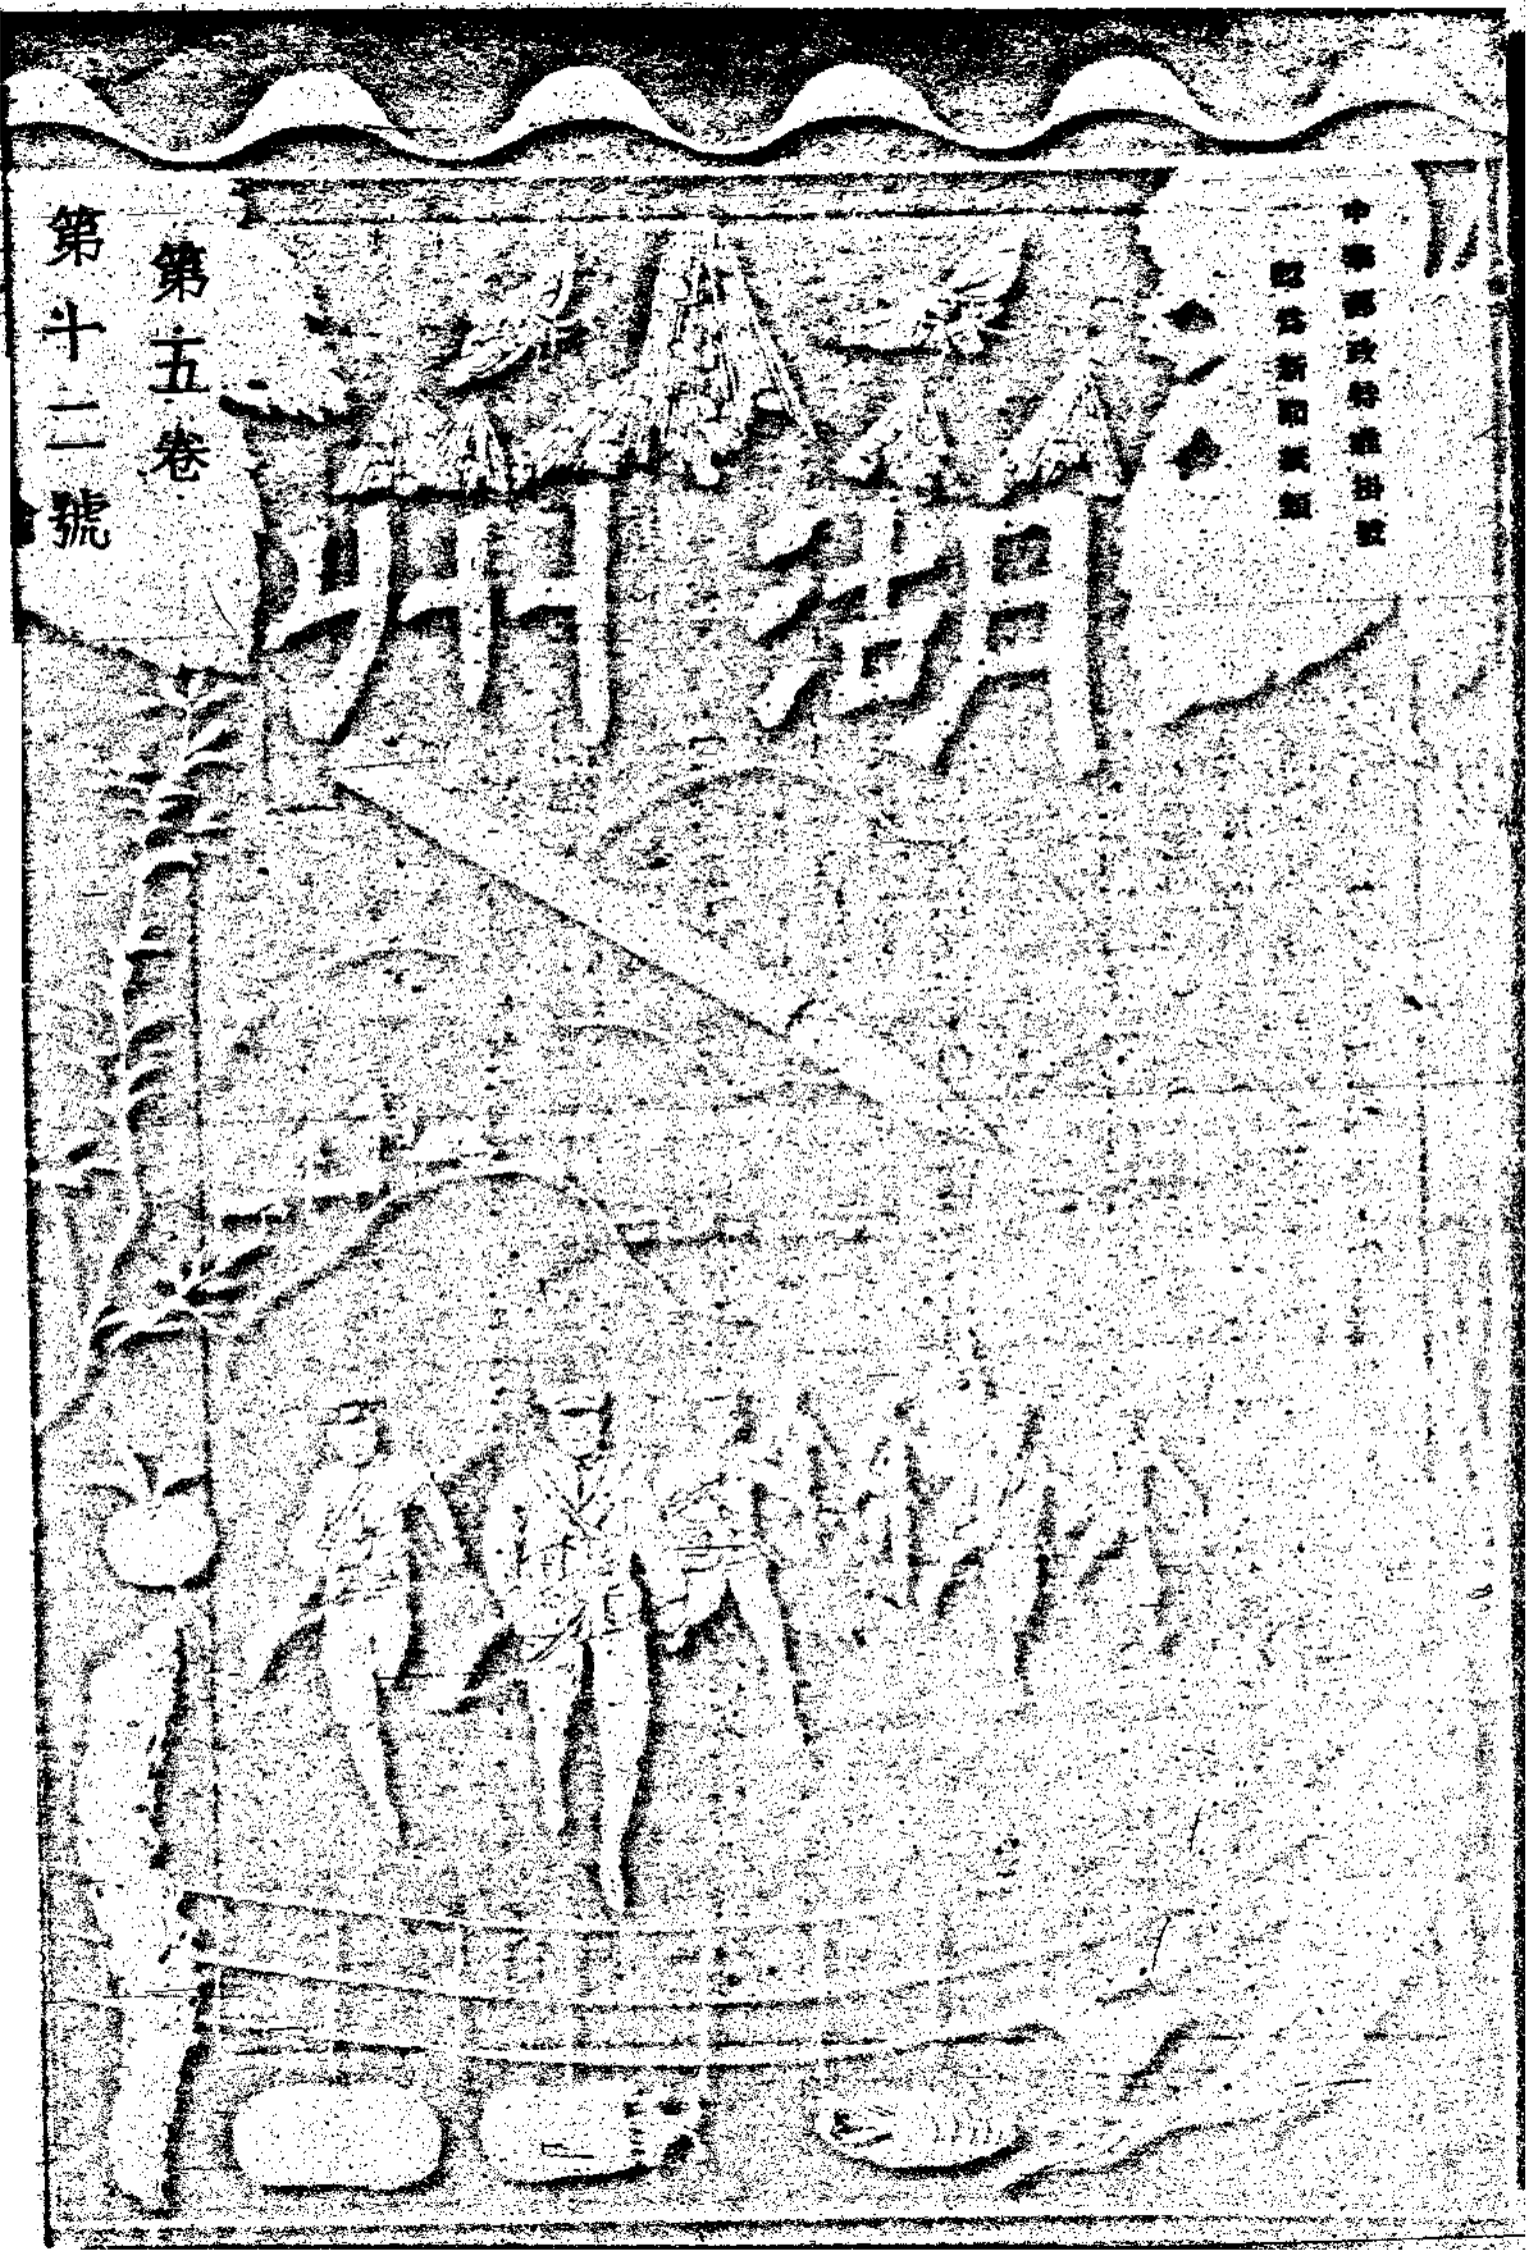 中華郵政特准掛號
認爲新聞紙類
湖州
第五卷
第十二號